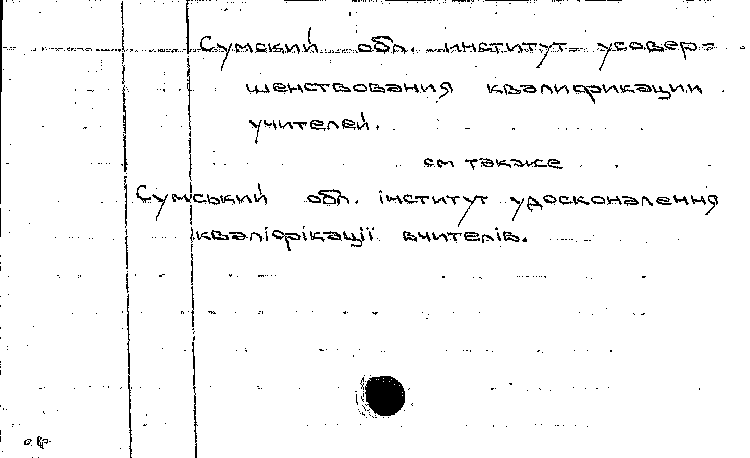 Сумский обл. институт усовер-
шенствования квалификации
учителей.
см также
Сумський обл. інститут удосконалення
кваліфікації вчителів.